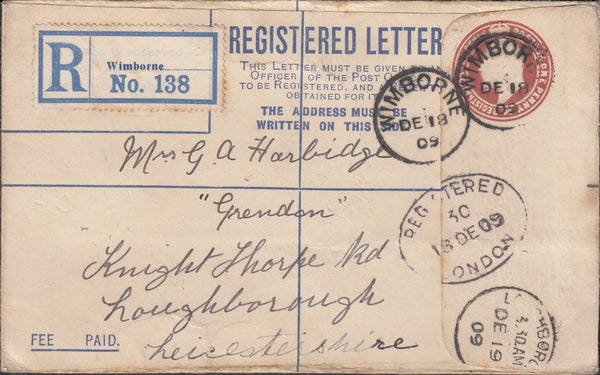 R
Wimborne
No. 138
REGISTERED LETTER
THIS LETTER MUST BE GIVEN TO AN
OFFICER OF THE POST OF
TO BE REGISTERED, AND A
OBTAINED FOR IT
THE ADDRESS MUST BE
WRITTEN ON THIS SIDE
WIMBORNE
DE 18
09
WIMBOR
DE 18
09
ONE PENNY
Mrs G A Harbidge
"Grendon"
Knight Thorpe Rd
Loughborough
Leicestershire
REGISTERED
30
18 DE 09
LONDON
HBORO
3.30AM
DE 19
09
FEE PAID.